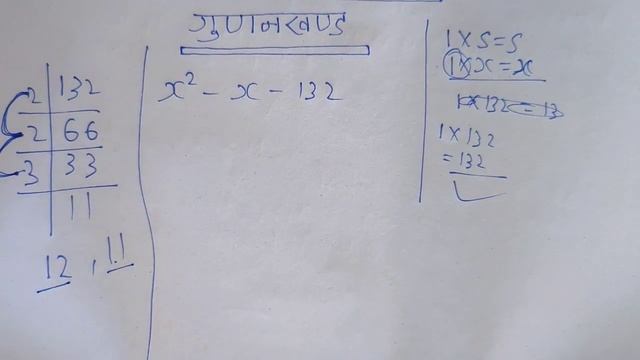 गुणनखण्ड
2 | 132
2 | 66
3 | 33
11
12 , 11
x² - x - 132
1 x 5 = 5
1 x x = x
1 x 132 = 13
1 x 132
= 132